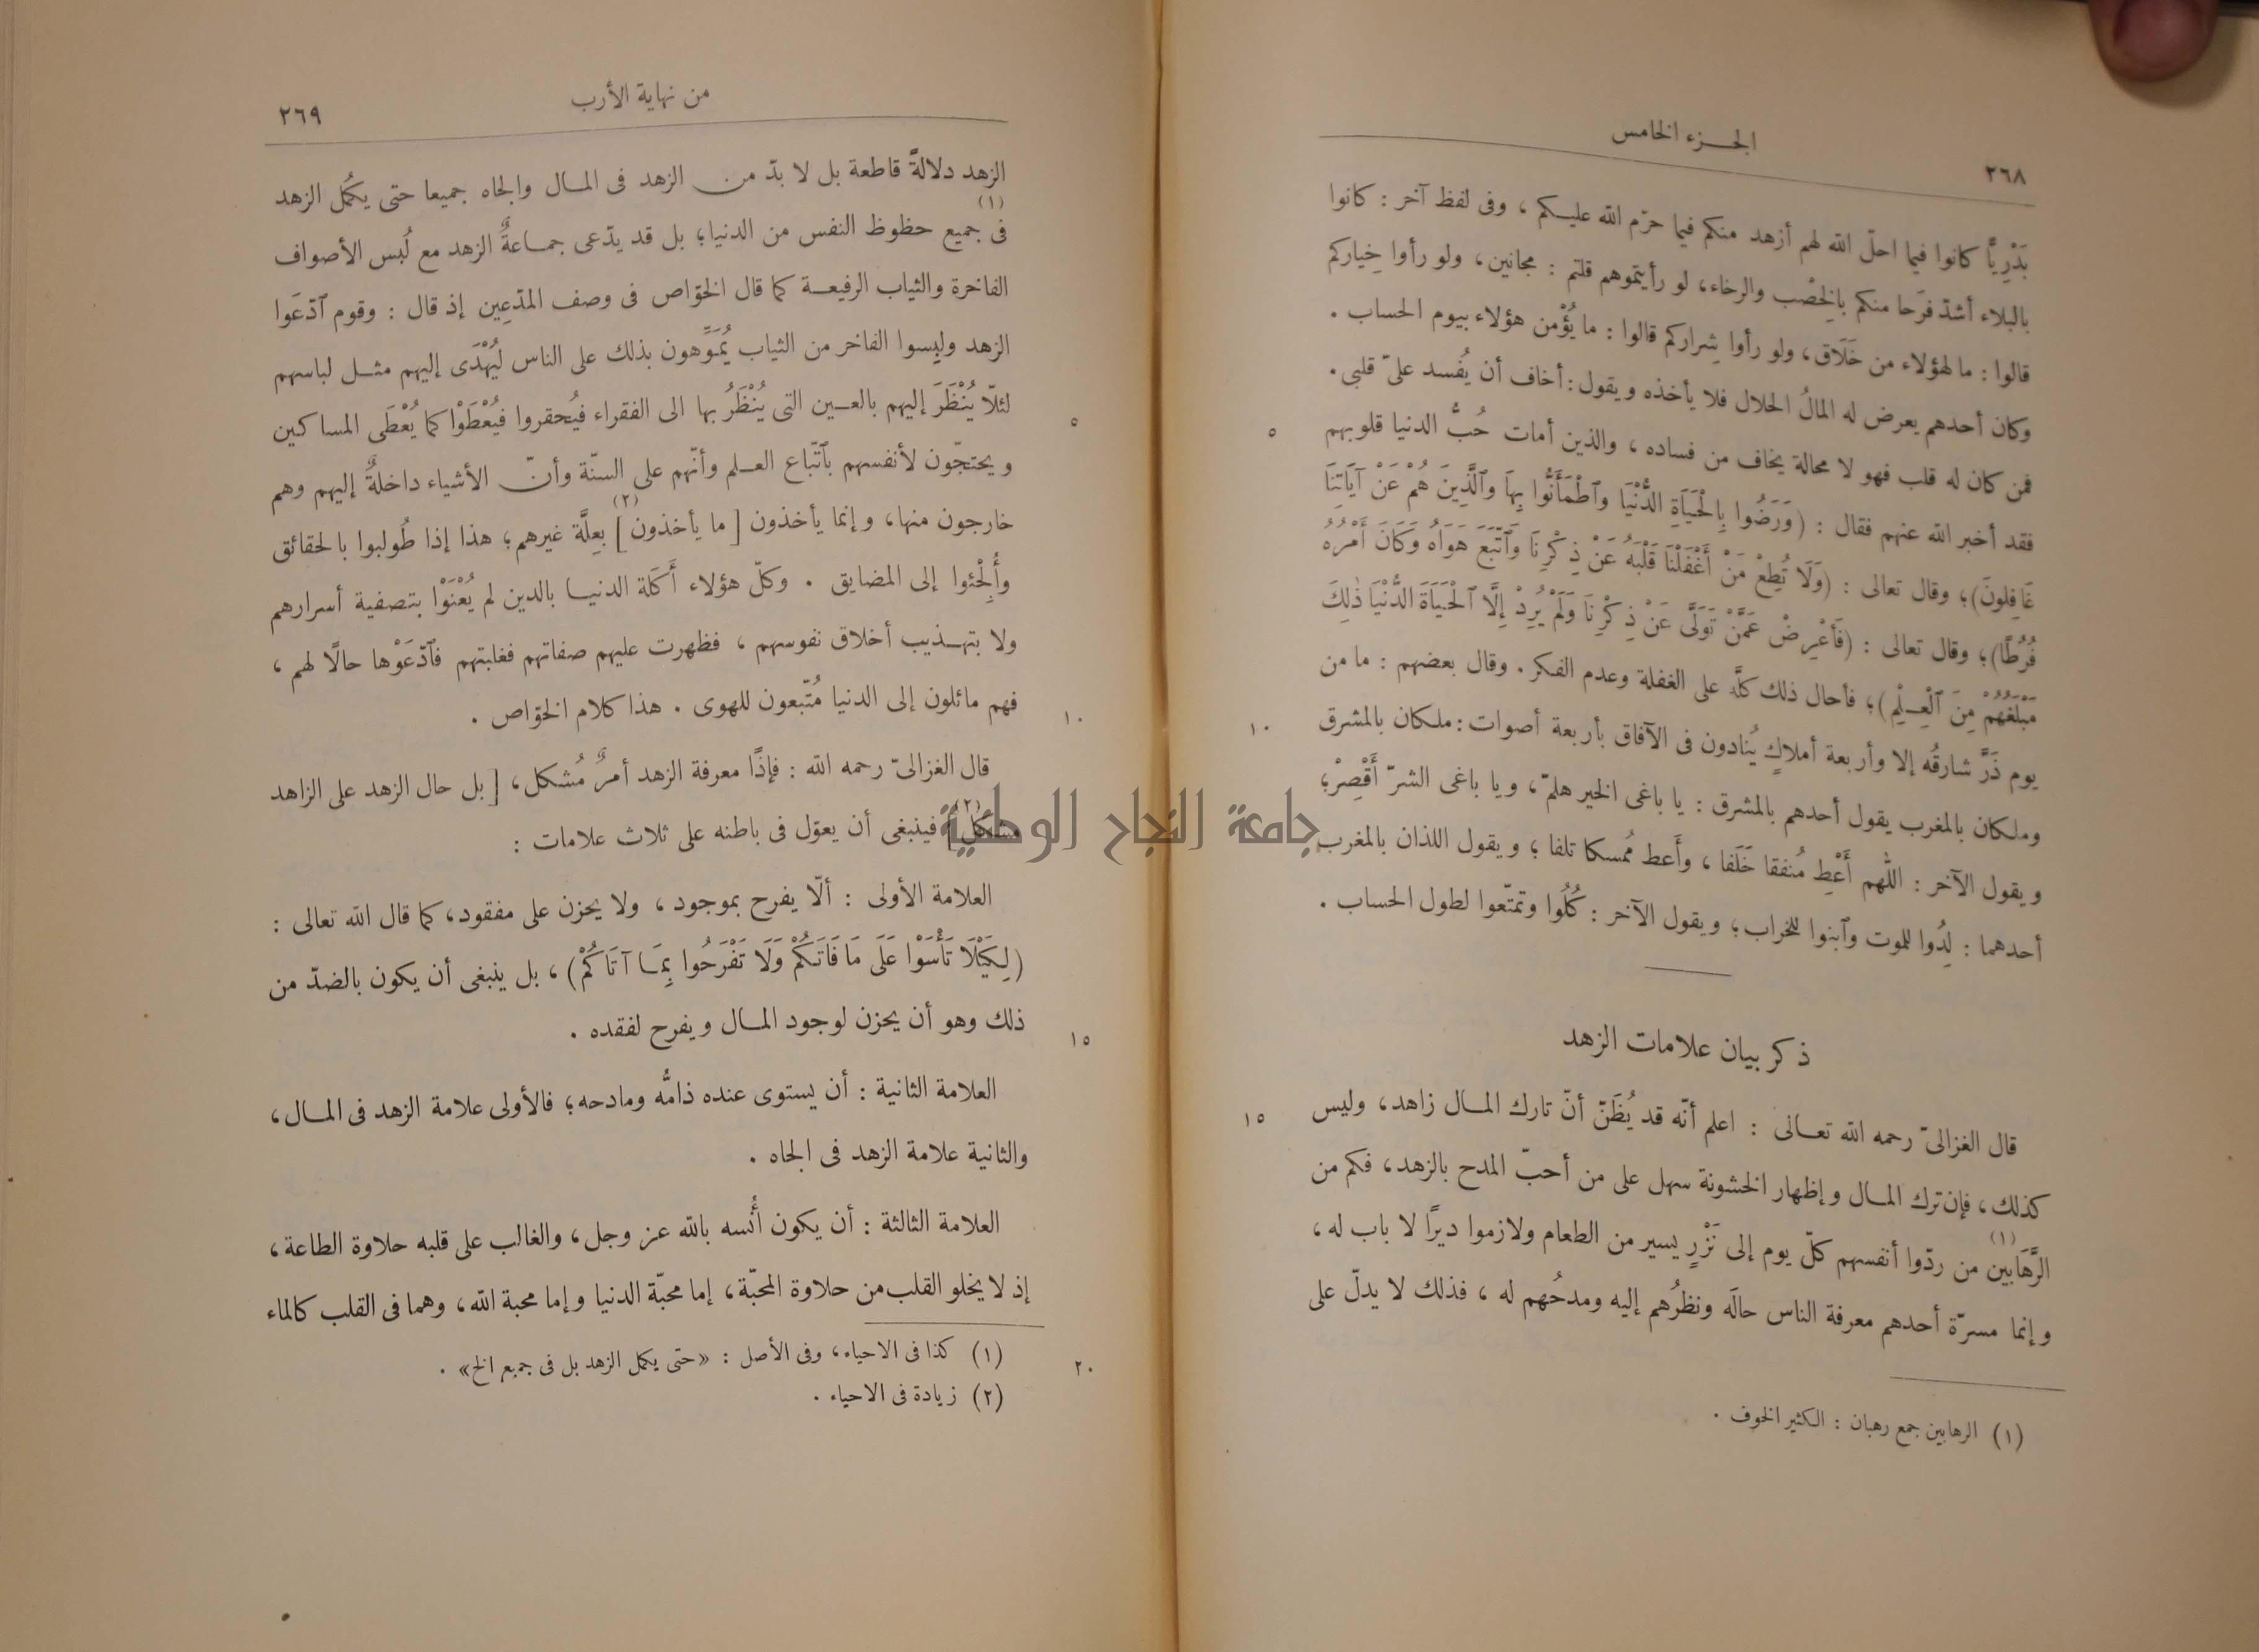 الجزء الخامس
٢٦٨
بَدْرِيًّا كانوا فيما احلّ الله لهم أزهد منكم فيما حرّم الله عليكم ، وفى لفظ آخر : كانوا
بالبلاء أشدّ فرَحا منكم بالخِصْب والرخاء، لو رأيتموهم قلتم : مجانين، ولو رأوا خِياركم
قالوا : ما لهؤلاء من خَلَاق، ولو رأوا شِراركم قالوا : ما يُؤْمن هؤلاء بيوم الحساب .
وكان أحدهم يعرض له المالُ الحلال فلا يأخذه ويقول : أخاف أن يُفسد علىّ قلبى .
٥
فمن كان له قلب فهو لا محالة يخاف من فساده ، والذين أمات حُبُّ الدنيا قلوبهم
فقد أخبر الله عنهم فقال : (وَرَضُوا بِالْحَيَاةِ الدُّنْيَا وَٱطْمَأَنُّوا بِهَا وَٱلَّذِينَ هُمْ عَنْ آيَاتِنَا
غَافِلونَ)؛ وقال تعالى : (وَلَا تُطِعْ مَنْ أَغْفَلْنَا قَلْبَهُ عَنْ ذِكْرِنَا وَٱتَّبَعَ هَوَاهُ وَكَانَ أَمْرُهُ
فُرُطًا)؛ وقال تعالى : (فَأَعْرِضْ عَمَّنْ تَوَلَّى عَنْ ذِكْرِنَا وَلَمْ يُرِدْ إِلَّا ٱلْحَيَاةَ الدُّنْيَا ذٰلِكَ
مَبْلَغُهُمْ مِنَ ٱلْعِلْمِ)؛ فأحال ذلك كلَّه على الغفلة وعدم الفكر . وقال بعضهم : ما من
يوم ذَرَّ شارقُه إلا وأربعة أملاكٍ يُنادون فى الآفاق بأربعة أصوات : ملكان بالمشرق
١٠
وملكان بالمغرب يقول أحدهم بالمشرق : يا باغى الخير هلمّ، ويا باغى الشرّ أَقْصِرْ؛
ويقول الآخر : اللّٰهم أَعْطِ مُنفقا خَلَفا ، وأَعط مُمسكا تلفا ؛ ويقول اللذان بالمغرب
أحدهما : لِدُوا للموت وٱبنوا للخراب؛ ويقول الآخر : كُلُوا وتمتّعوا لطول الحساب .
ذكر بيان علامات الزهد
قال الغزالىّ رحمه الله تعالى : اعلم أنّه قد يُظَنّ أنّ تارك المال زاهد، وليس
١٥
كذلك، فإن ترك المال وإظهار الخشونة سهل على من أحبّ المدح بالزهد، فكم من
الرَّهَابين (١) من ردّوا أنفسهم كلّ يوم إلى نَزْرٍ يسير من الطعام ولازموا ديرًا لا باب له ،
وإنما مسرّة أحدهم معرفة الناس حالَه ونظرُهم إليه ومدحُهم له ، فذلك لا يدلّ على
(١) الرهابين جمع رهبان : الكثير الخوف .
من نهاية الأرب
٢٦٩
الزهد دلالةً قاطعة بل لا بدّ من الزهد فى المال والجاه جميعا حتى يكمُل الزهد
فى (١) جميع حظوظ النفس من الدنيا؛ بل قد يدّعى جماعةٌ الزهد مع لُبس الأصواف
الفاخرة والثياب الرفيعة كما قال الخوّاص فى وصف المدّعِين إذ قال : وقوم ٱدّعَوا
الزهد ولبسوا الفاخر من الثياب يُمَوِّهون بذلك على الناس ليُهْدَى إليهم مثل لباسهم
لئلّا يُنْظَرَ إليهم بالعين التى يُنْظَرُ بها الى الفقراء فيُحقروا فيُعْطَوْا كما يُعْطَى المساكين
٥
ويحتجّون لأنفسهم بٱتّباع العلم وأنّهم على السنّة وأنّ الأشياء داخلةٌ إليهم وهم
خارجون منها، وإنما يأخذون [ما يأخذون] (٢) بعِلَّة غيرهم؛ هذا إذا طُولبوا بالحقائق
وأُلجْئوا إلى المضايق . وكلّ هؤلاء أَكَلة الدنيا بالدين لم يُعْنَوْا بتصفية أسرارهم
ولا بتهذيب أخلاق نفوسهم ، فظهرت عليهم صفاتهم فغلبتهم فٱدّعَوْها حالًا لهم ،
فهم مائلون إلى الدنيا مُتّبعون للهوى . هذا كلام الخوّاص .
١٠
قال الغزالىّ رحمه الله : فإذًا معرفة الزهد أمرٌ مُشكل، [بل حال الزهد على الزاهد
مشكل] (٢) فينبغى أن يعوّل فى باطنه على ثلاث علامات :
جامعة النجاح الوطنية
العلامة الأولى : ألّا يفرح بموجود ، ولا يحزن على مفقود، كما قال الله تعالى :
(لِكَيْلَا تَأْسَوْا عَلَى مَا فَاتَكُمْ وَلَا تَفْرَحُوا بِمَا آتَاكُمْ) ، بل ينبغى أن يكون بالضدّ من
ذلك وهو أن يحزن لوجود المال ويفرح لفقده .
١٥
العلامة الثانية : أن يستوى عنده ذامُّه ومادحه؛ فالأولى علامة الزهد فى المال،
والثانية علامة الزهد فى الجاه .
العلامة الثالثة : أن يكون أُنسه بالله عز وجل، والغالب على قلبه حلاوة الطاعة،
إذ لا يخلو القلب من حلاوة المحبّة، إما محبّة الدنيا وإما محبة الله، وهما فى القلب كالماء
(١) كذا فى الاحياء، وفى الأصل : «حتى يكمل الزهد بل فى جميع الخ» .
٢٠
(٢) زيادة فى الاحياء .